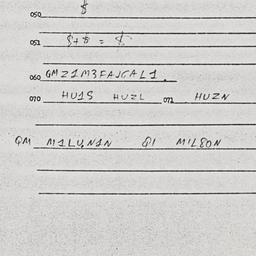 050
051 $ + $ = $
060 GMZ1M3FAJGAL1.
070 HU1S HUZL 071 HUZN
GM M1LUN1N 81 MIL80N